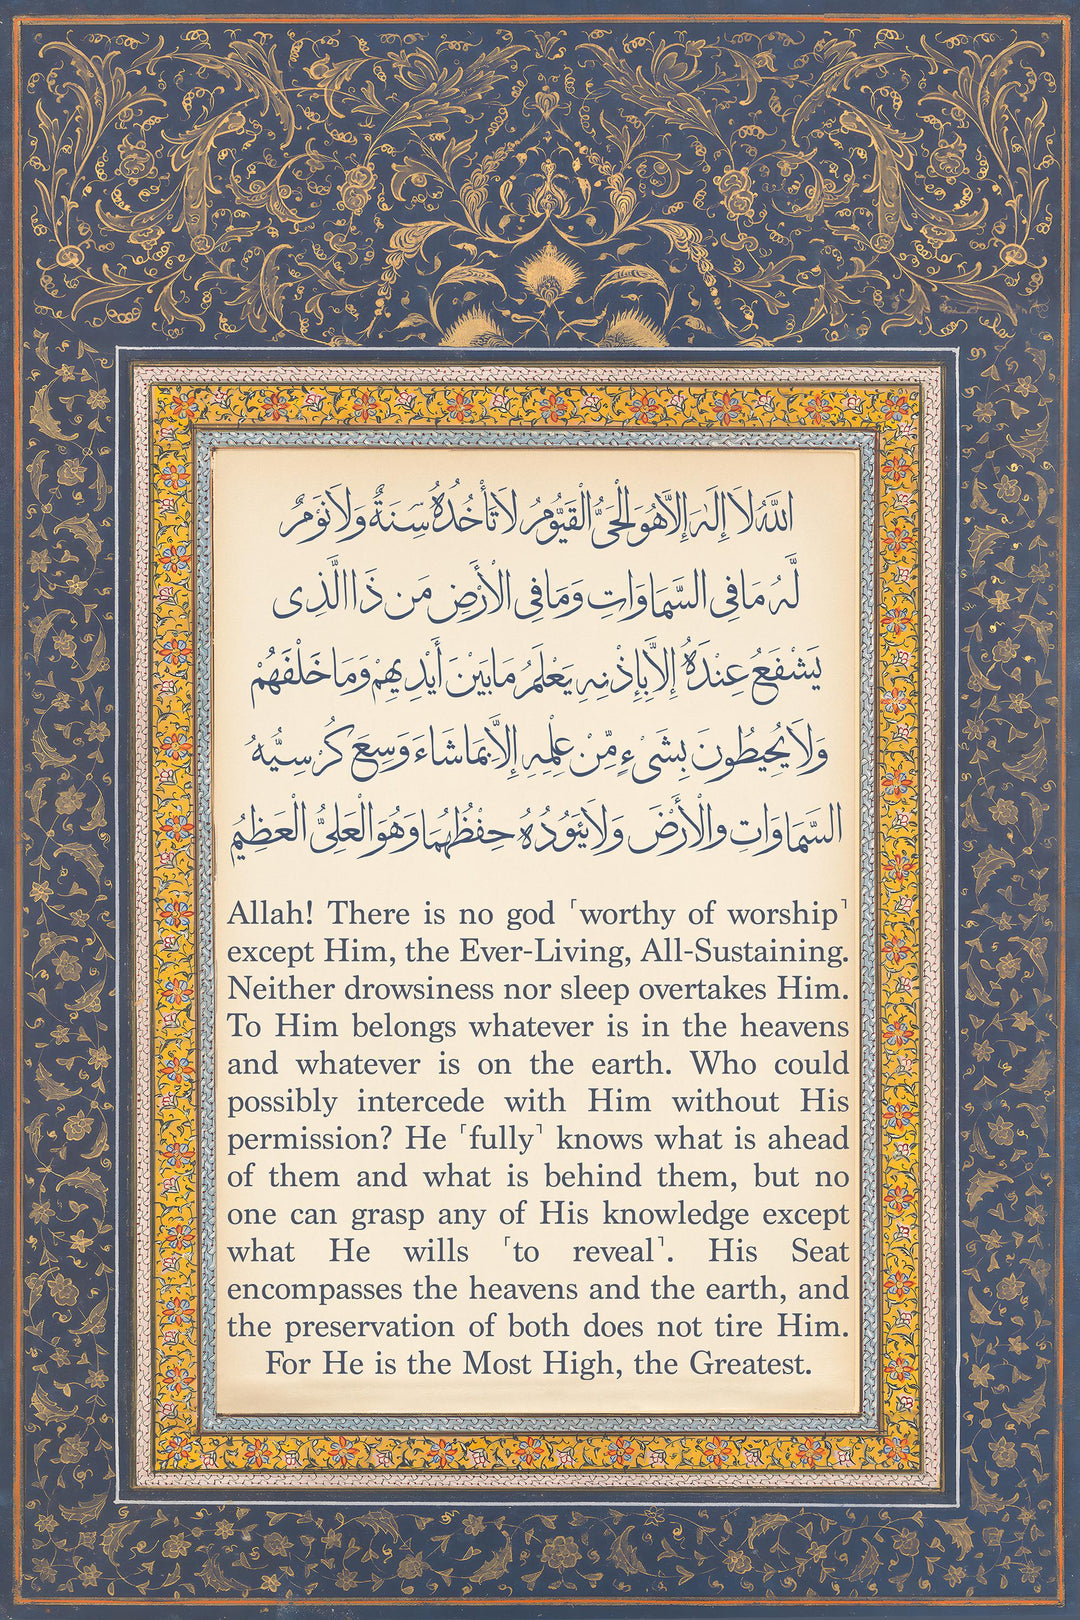 اللَّهُ لَا إِلَٰهَ إِلَّا هُوَ الْحَيُّ الْقَيُّومُ لَا تَأْخُذُهُ سِنَةٌ وَلَا نَوْمٌ
لَّهُ مَا فِي السَّمَاوَاتِ وَمَا فِي الْأَرْضِ مَن ذَا الَّذِي
يَشْفَعُ عِنْدَهُ إِلَّا بِإِذْنِهِ يَعْلَمُ مَا بَيْنَ أَيْدِيهِمْ وَمَا خَلْفَهُمْ
وَلَا يُحِيطُونَ بِشَيْءٍ مِّنْ عِلْمِهِ إِلَّا بِمَا شَاءَ وَسِعَ كُرْسِيُّهُ
السَّمَاوَاتِ وَالْأَرْضَ وَلَا يَئُودُهُ حِفْظُهُمَا وَهُوَ الْعَلِيُّ الْعَظِيمُ
Allah! There is no god ˹worthy of worship˺
except Him, the Ever-Living, All-Sustaining.
Neither drowsiness nor sleep overtakes Him.
To Him belongs whatever is in the heavens
and whatever is on the earth. Who could
possibly intercede with Him without His
permission? He ˹fully˺ knows what is ahead
of them and what is behind them, but no
one can grasp any of His knowledge except
what He wills ˹to reveal˺. His Seat
encompasses the heavens and the earth, and
the preservation of both does not tire Him.
For He is the Most High, the Greatest.